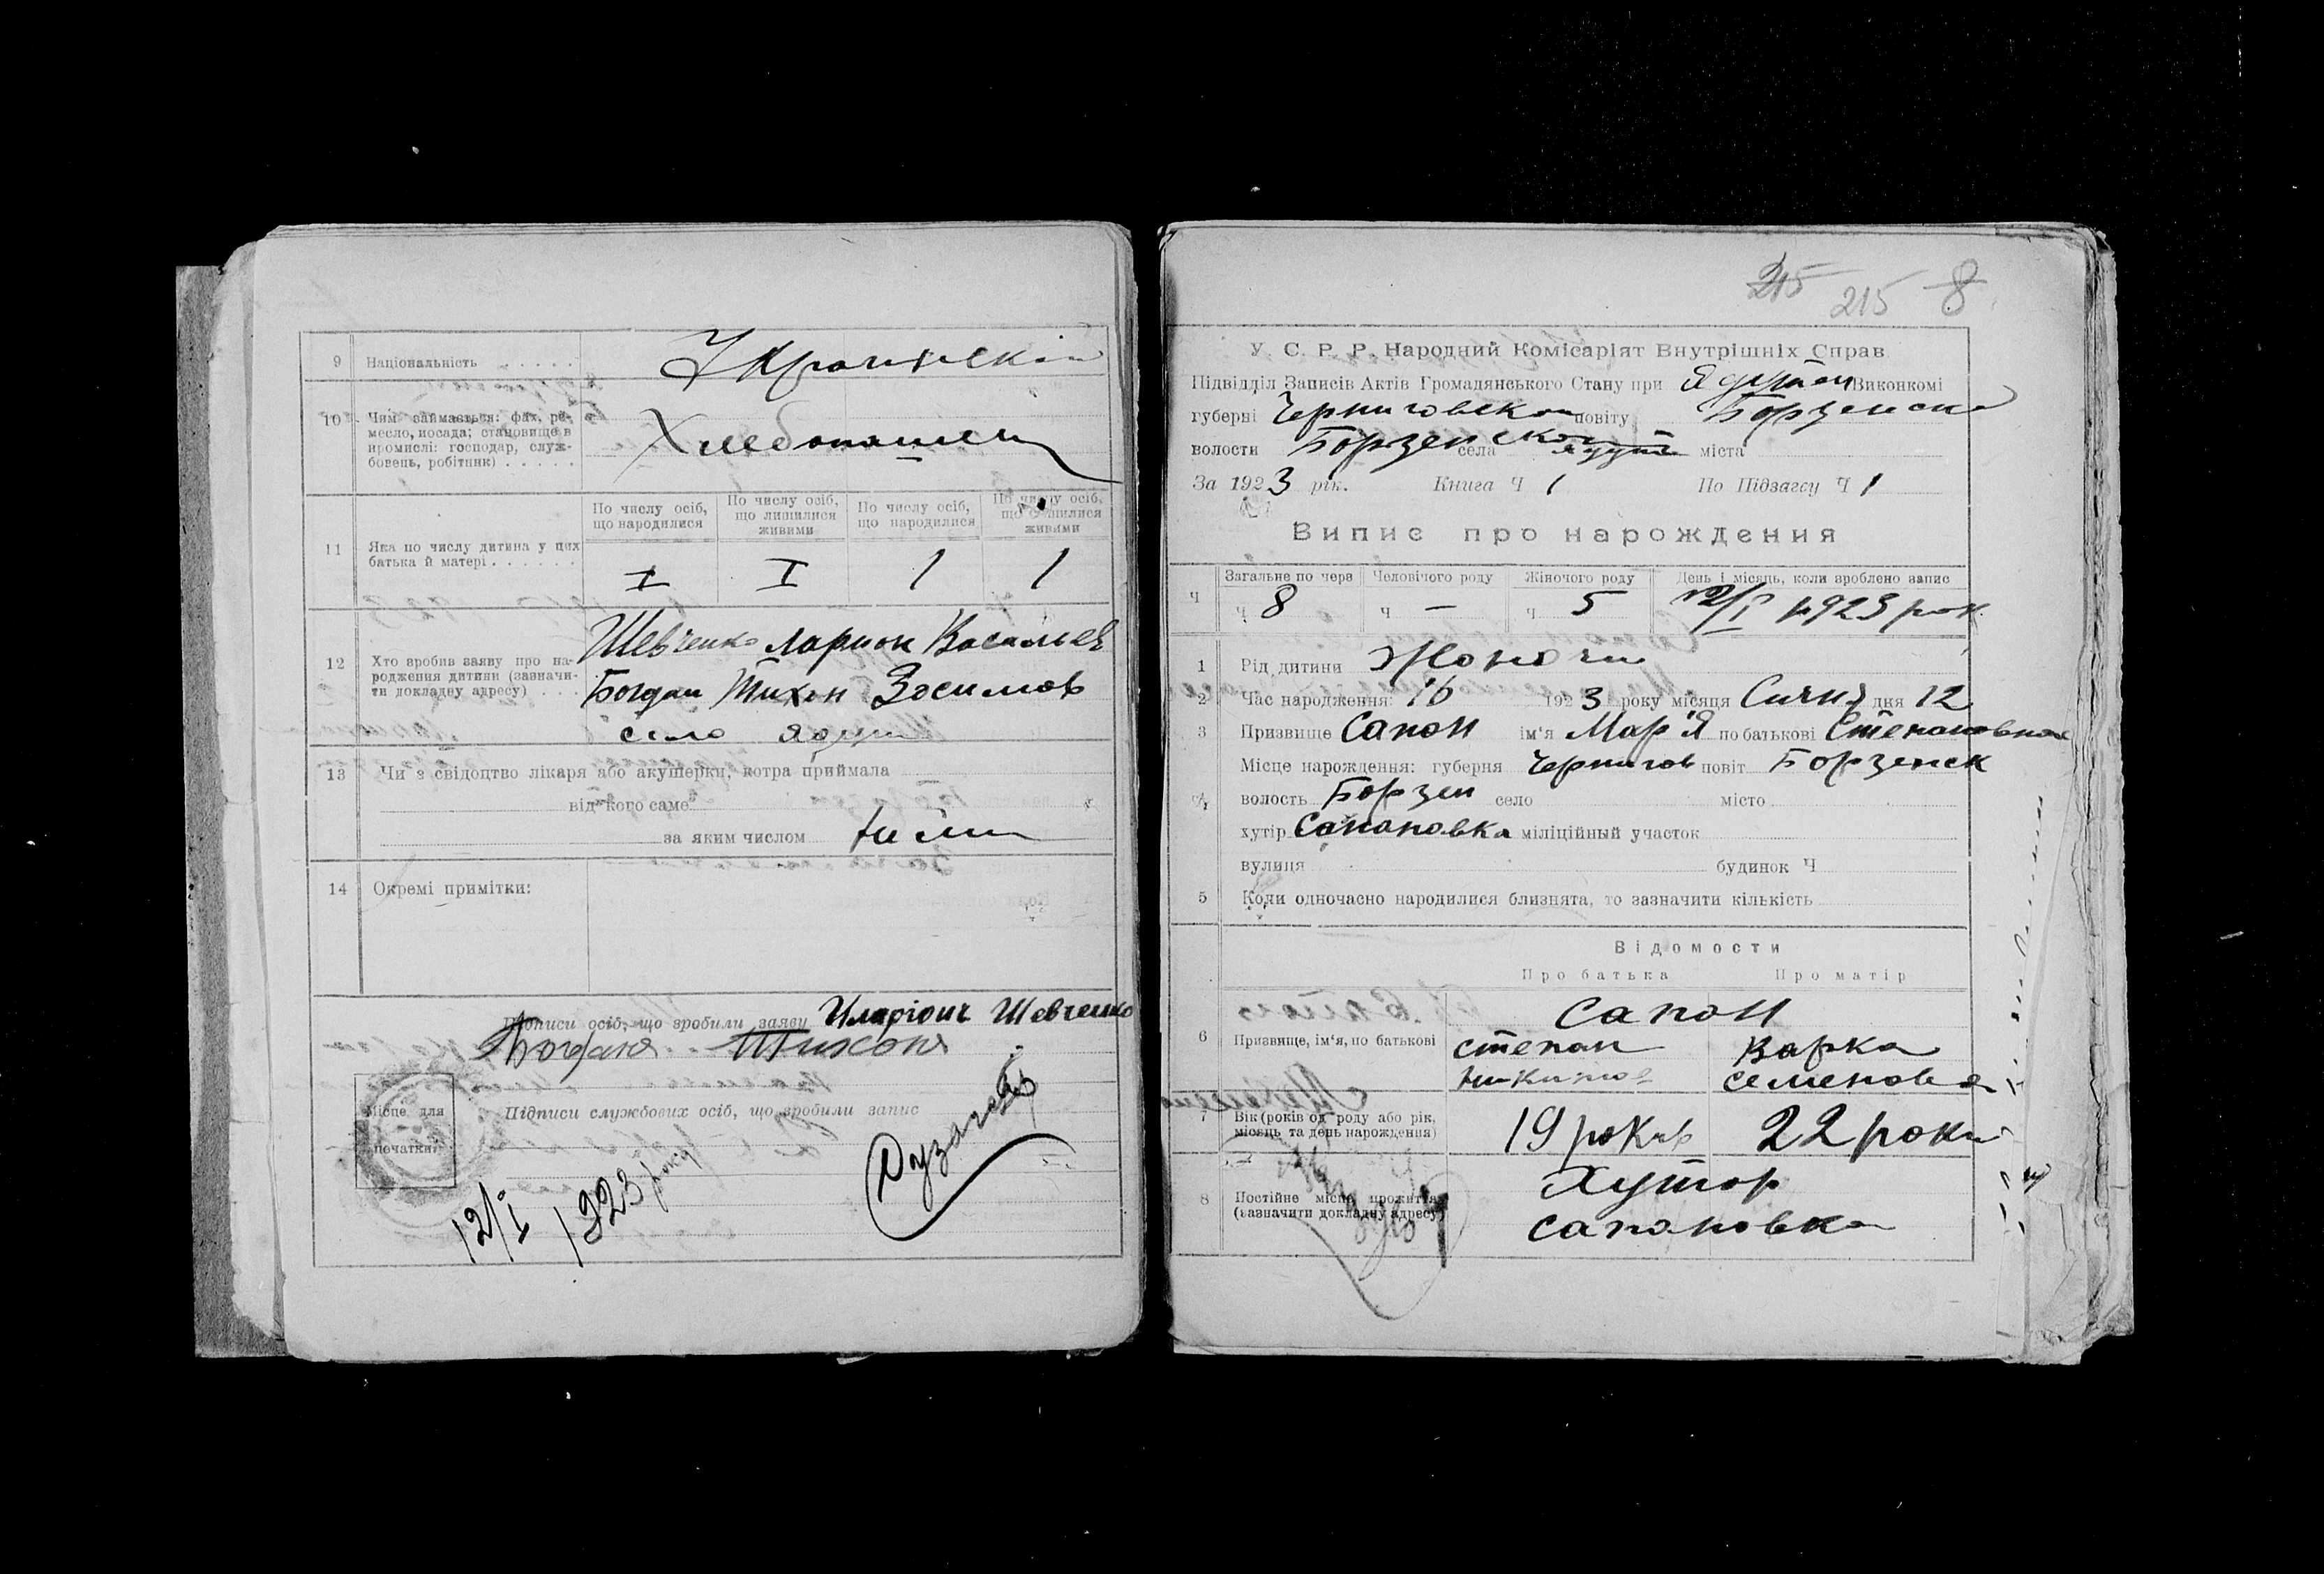 9 Національність . . . . .
Украинскій
10 Чим займається: фах, ре-
месло, посада; становище в
промислі: господар, служ-
бовець, робітник) . . . . .
Хлебопашец
По числу осіб, що народилися
По числу осіб, що лишилися живими
По числу осіб, що народилися
По числу осіб, що лишилися живими
11 Яка по числу дитина у цих
батька й матері . . . . . .
I I 1 1
12 Хто вробив заяву про на-
родження дитини (зазначи-
ти докладну адресу) . . .
Шевченко Ларион Васильев
Богдан Тихон Зосимов
село Ядути
13 Чи з свідоцтво лікаря або акушерки, котра приймала
від кого саме
за яким числом
14 Окремі примітки:
Підписи осіб, що зробили заяву Иларіонъ Шевченко
Богданъ Тихонъ
Місце для
печатки
Підписи службових осіб, що зробили запис
12/I 1923 року
215 215 8
У. С. Р. Р. Народний Комісаріят Внутрішніх Справ
Підвідділ Записів Актів Громадянського Стану при Ядутен Виконкомі
губерні Черниговской повіту Борзенск
волости Борзенской села Ядути міста
За 1923 рік. Книга Ч 1 По Підзагсу Ч 1
Випис про нарождения
Ч
Загальне по черв
Человічого роду
Жіночого роду
День і місяць, коли вроблено вапис
Ч 8 Ч — Ч 5 12/I 1923 рок.
1 Рід дитини Жоночи
2 Час народження: 1923 року місяця Сичня дня 12
3 Призвище Сапон ім'я Мар'я по батькові Степановна
Місце нарождения: губерня Чернигов повіт Борзенск
4 волость Борзен село місто
хутір Сапоновка міліційный участок
вулиця будинок Ч
5 Коли одночасно народилися близнята, то зазначити кількість
Відомости
Про батька Про матір
6 Призвище, ім'я, по батькові
Сапон
Степан Варка
Никитов Семеновна
7 Вік (років од роду або рік,
місяць та день нарождення)
19 років 22 роки
8 Постійне місце прожиття
(вазначити докладну адресу)
Хутор
Сапоновка